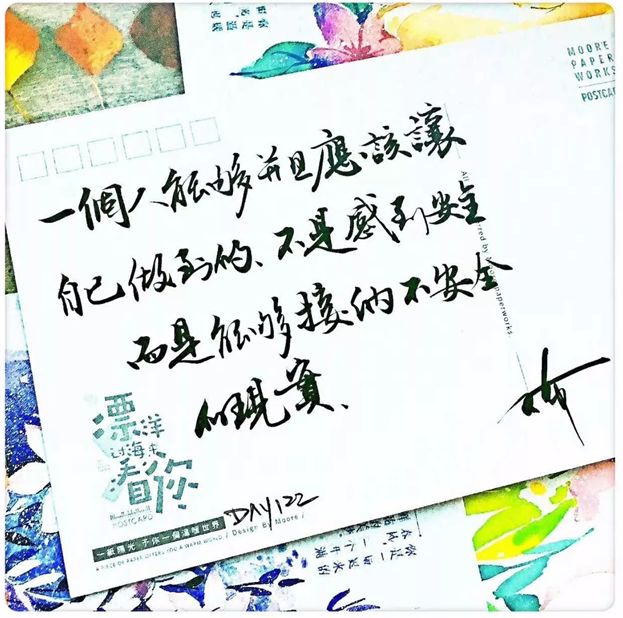 MOORE
PAPER
WORKS
POSTCARD
一個人能够并且應該讓
自己做到的、不是感到安全
而是能够接納不安全
的現實、
漂洋
过海来
看你
POSTCARD
DAY122
一紙陽光 予你一個溫暖世界 / Design By Moore /
A PIECE OF PAPER OFFERS YOU A WARM WORLD